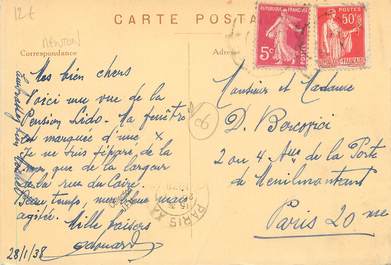 12€
MENTON
CARTE POSTA
Correspondance
Adresse
RÉPUBLIQUE FRANÇAISE
5c
POSTES
50c
Mes bien chers
Voici une vue de la
Pension Lido. Ma fenêtre
est marquée d'une X
Je ne suis séparé, de la
mer que de la largeur
de la rue du Caire.
Beau temps, mer bleue mais
agitée.
Mille baisers
Edouard
28/1/38
06
PARIS
Monsieur et Madame
D. Bercovici
2 ou 4 Av. de la Porte
de Menilmontant
Paris 20me